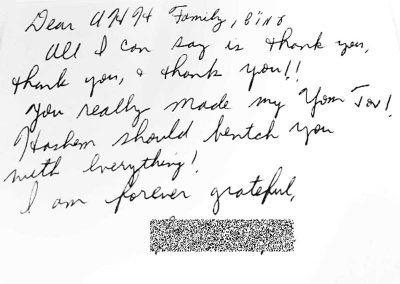 Dear UHH Family, שיחי'
All I can say is thank you,
thank you, & thank you!!
You really made my Yom Tov!
Hashem should bentch you
with everything!
I am forever grateful,